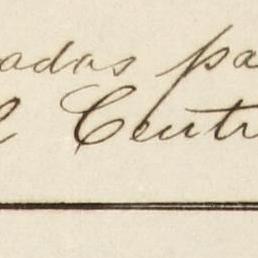 adas pa
l Centr